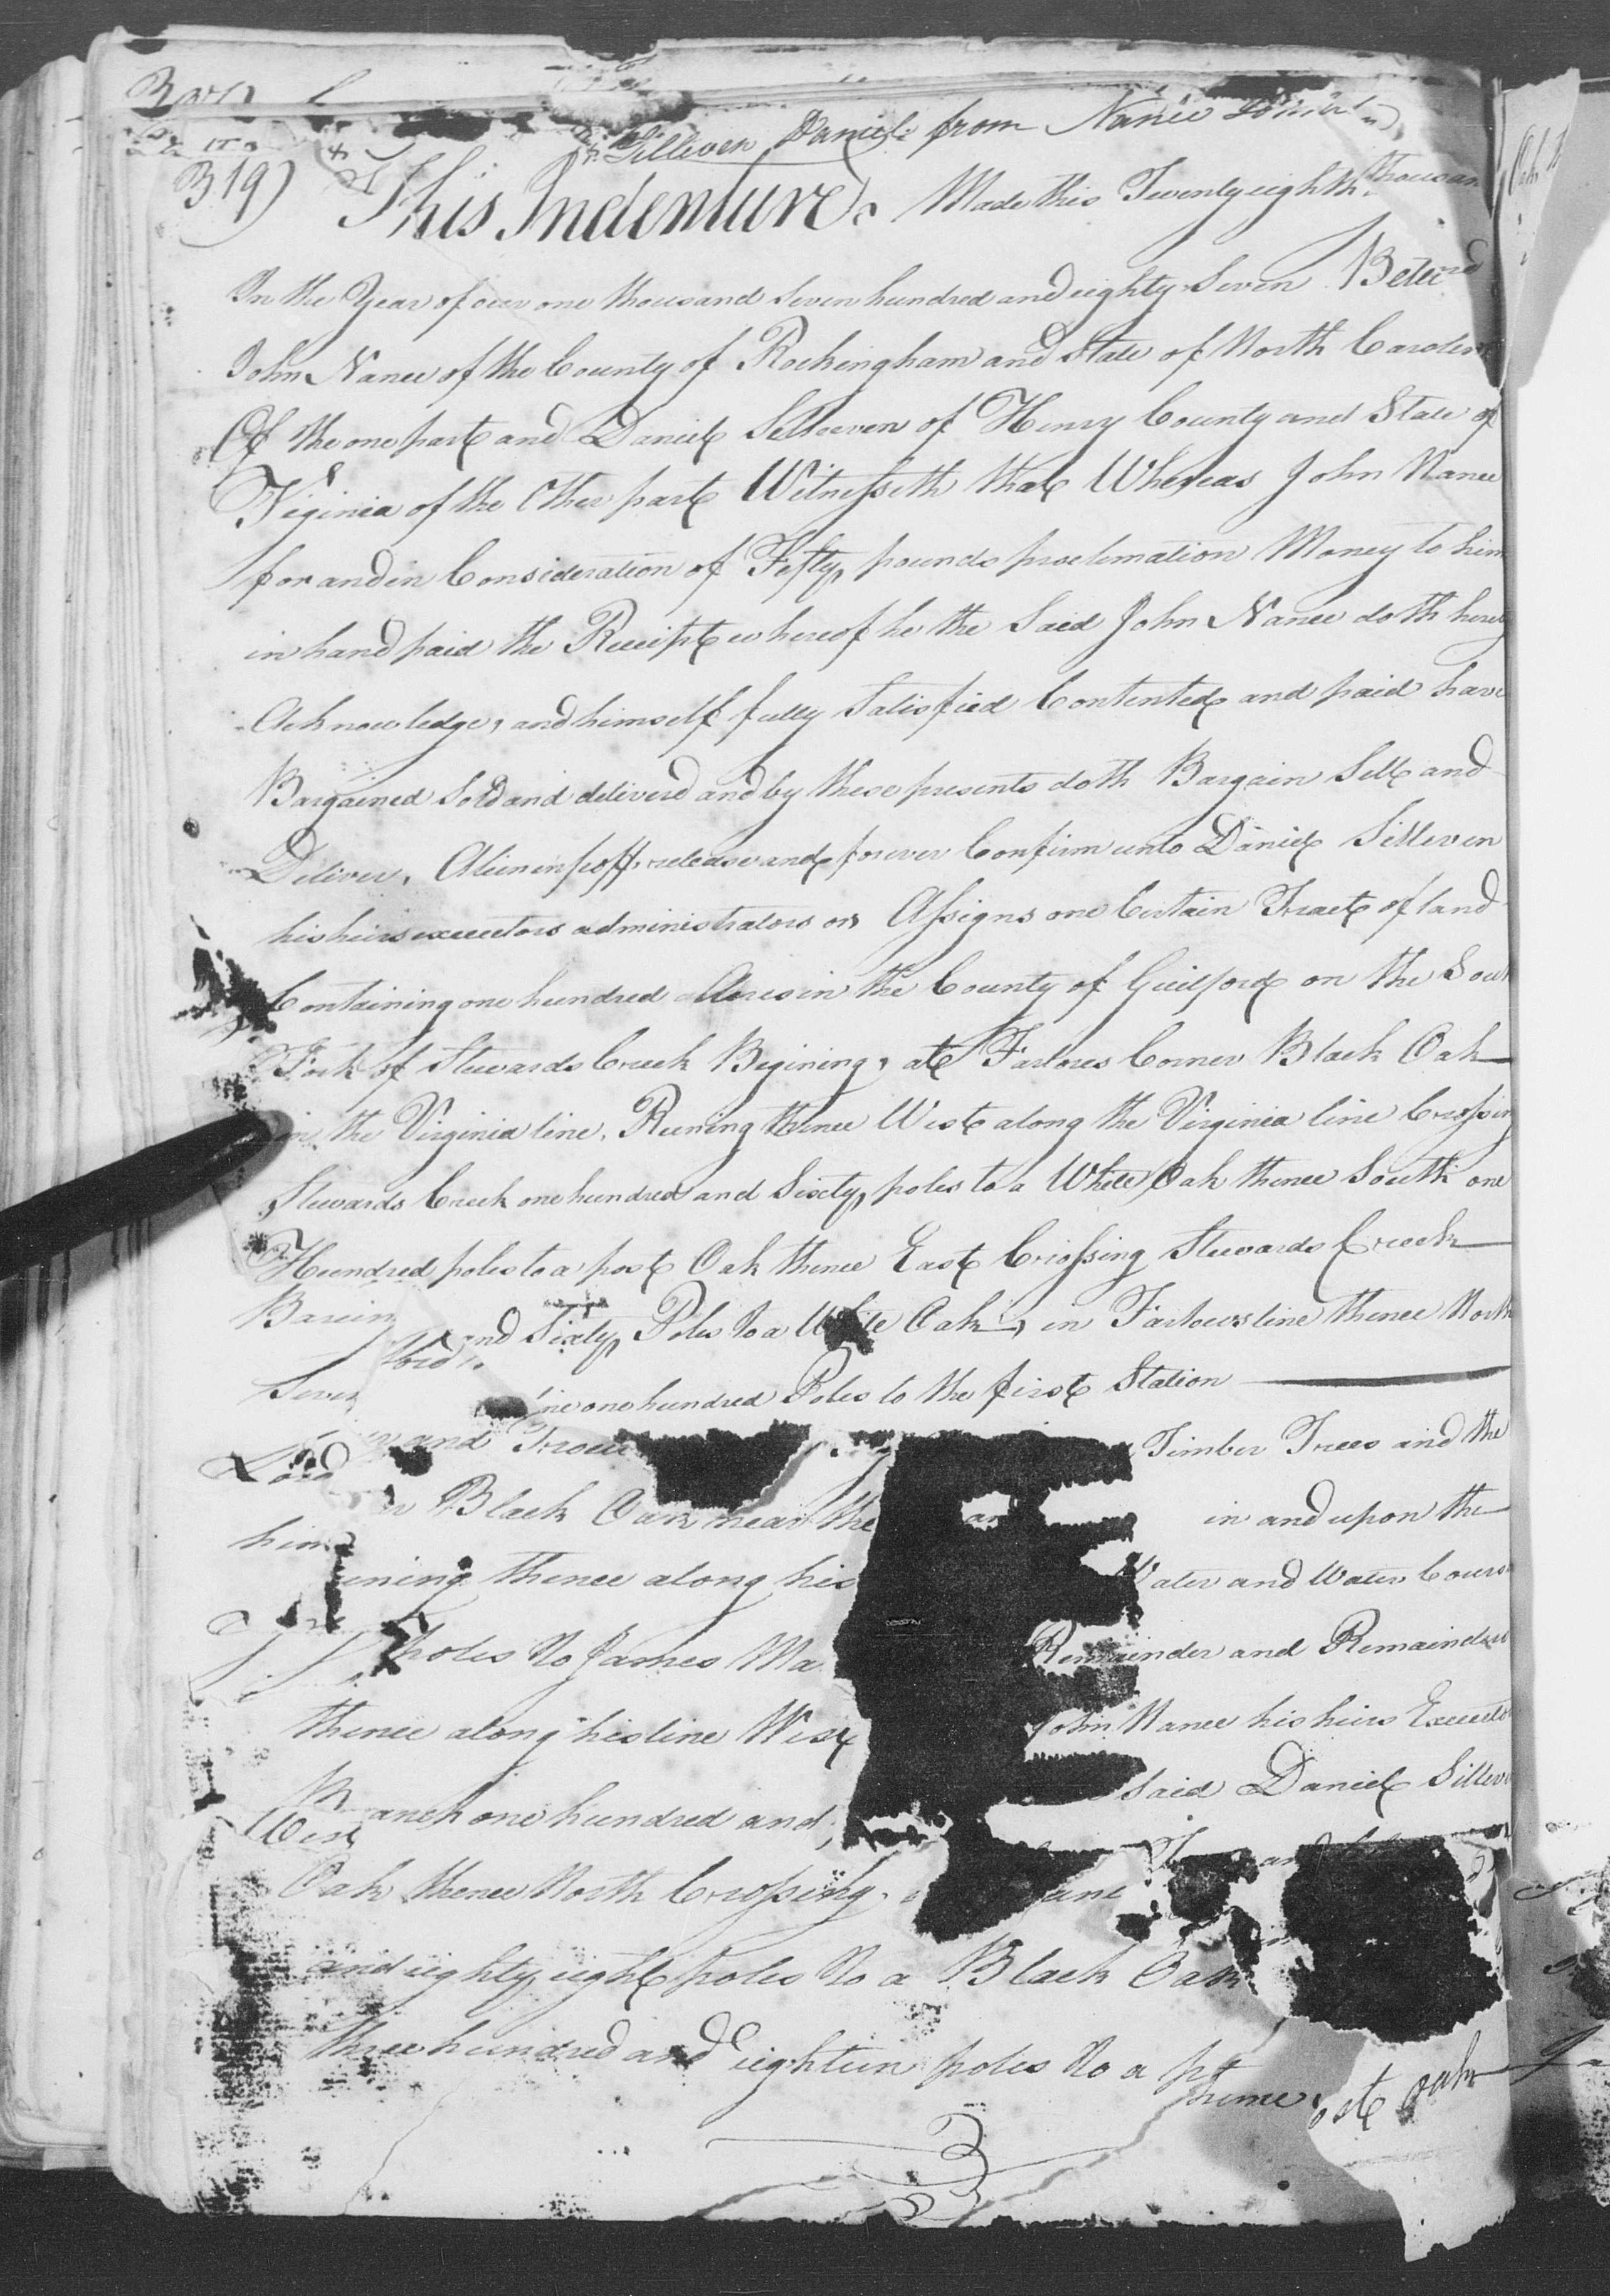 319)
Silleven Daniel from Nance John
This Indenture Made this Twenty eighth thousan
In the Year of our one thousand Seven hundred and eighty Seven Betw
John Nance of the County of Rockingham and State of North Carolin
Of the one part and Daniel Silleven of Henry County and State of
Viginia of the Other part Witnesseth that Whereas John Nance
for and in Consideration of Fifty pounds proclimation Money to him
in hand paid the Receipt whereof he the Said John Nance doth here
Acknowledge, and himself fully Satisfied Contented and paid have
Bargained Sold and deliverd and by these presents doth Bargain Sell and
Deliver, release and forever Confirm unto Daniel Silleven
his heirs executors administrators or Assigns one Certain Tract of land
Containing one hundred Acres in the County of Guilford on the Sout
Fork of Stewards Creek Begining, at Farlows Corner Black Oak
in the Virginia line, Runing thence West along the Virginia line Crossin
Stewards Creek one hundred and Sixty poles to a White Oak thence South one
Hundred poles to a post Oak thence East Crossing Stewards Creek
and Sixty Poles to a White Oak, in Farlows line thence North
one hundred Poles to the first Station
and Timber Trees and the
Black Oak near the in and upon the
thence along his Water and Water Cours
poles to James Ma Remainder and Remainders
thence along his line West John Nance his heirs Executo
Branch one hundred and said Daniel Silleve
Oak thence North Crossing
and eighty eight poles to a Black Oak
three hundred and eighteen poles to a post oak